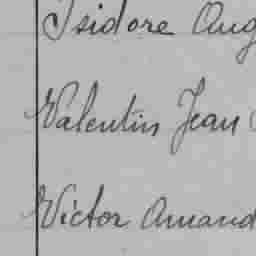 Isidore Aug
Valentin Jean
Victor Amand